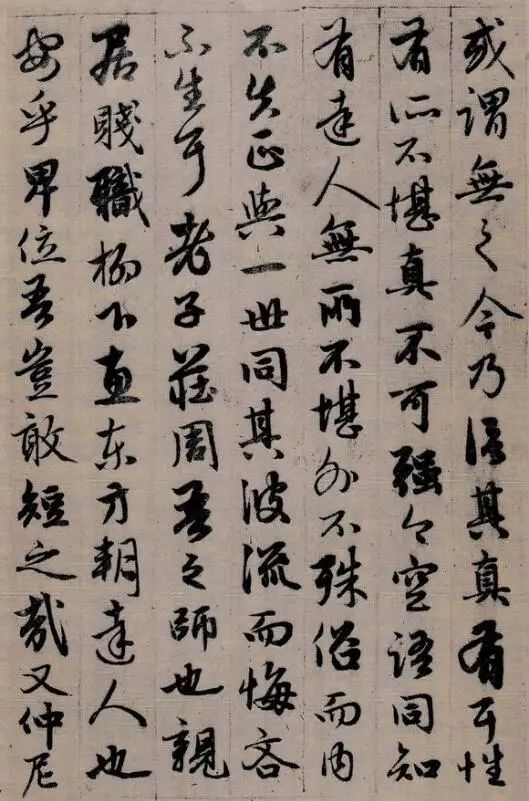 或謂無之今乃信其真有耳性
有所不堪真不可強今空語同知
有達人無所不堪外不殊俗而內
不失正與一世同其波流而悔吝
不生耳老子莊周吾之師也親
居賤職柳下惠東方朝達人也
安乎卑位吾豈敢短之哉又仲尼